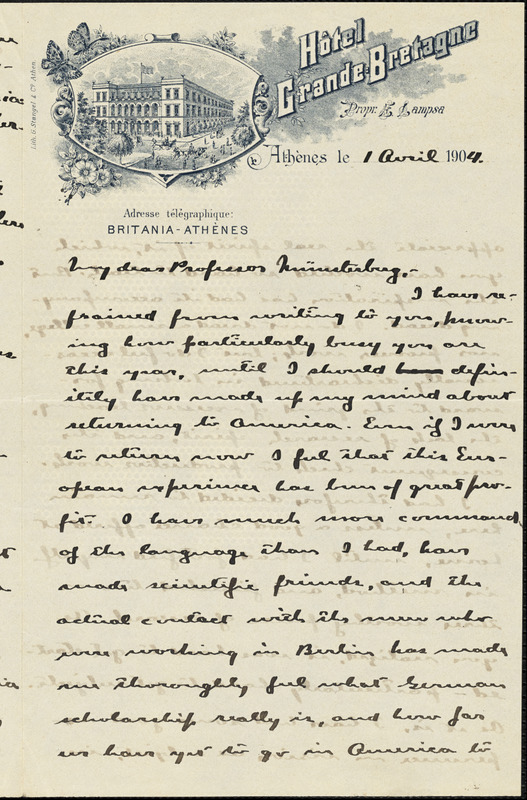 Hôtel
Grande-Bretagne
Propr. E. Lampsa
Lith. G. Stangel & Co. Athen.
Athènes le 1 Avril 1904.
Adresse télégraphique:
BRITANIA-ATHÈNES
My dear Professor Münsterberg,-
I have re-
frained from writing to you, know-
ing how particularly busy you are
this year, until I should defin-
itely have made up my mind about
returning to America. Even if I were
to return now I feel that this Eur-
opean experience has been of great pro-
fit. I have much more command
of the language than I had, have
made scientific friends, and the
actual contact with the men who
were working in Berlin has made
me thoroughly feel what German
scholarship really is, and how far
we have yet to go in America to